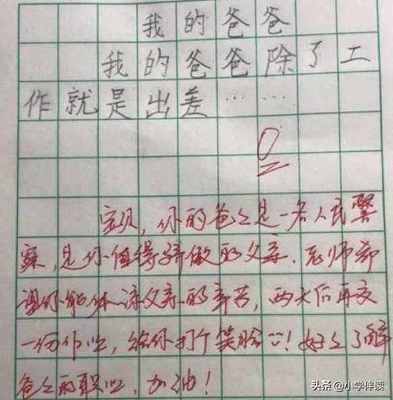 我的爸爸
我的爸爸除了工
作就是出差……
0
宝贝，你的爸爸是一名人民警
察，是你值得骄傲的父亲．老师希
望你能体谅父亲的辛苦，两天后再交
一份作业，给你打个笑脸！好好了解
爸爸的职业，加油！
头条@小学伴读